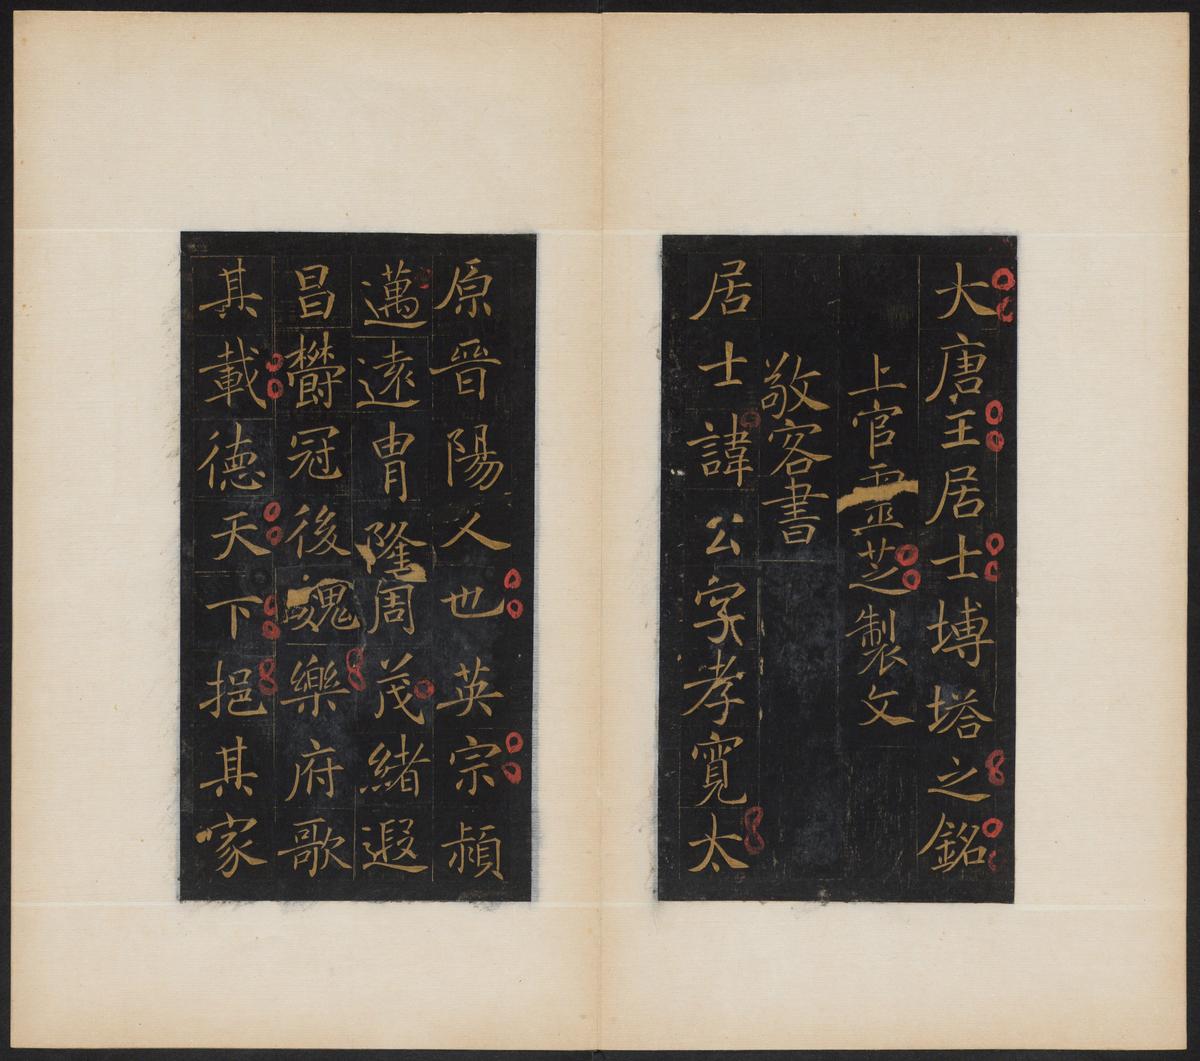 大唐王居士塼塔之銘
上官靈芝製文
敬客書
居士諱公字孝寬太
原晉陽人也英宗潁
邁遠冑隆周茂緒遐
昌欝冠後魏樂府歌
其載德天下挹其家